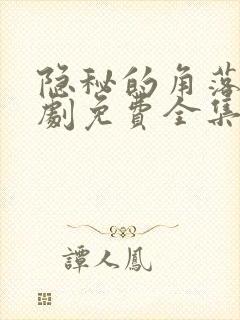 隐秘的角落
劇免費全集
譚人鳳